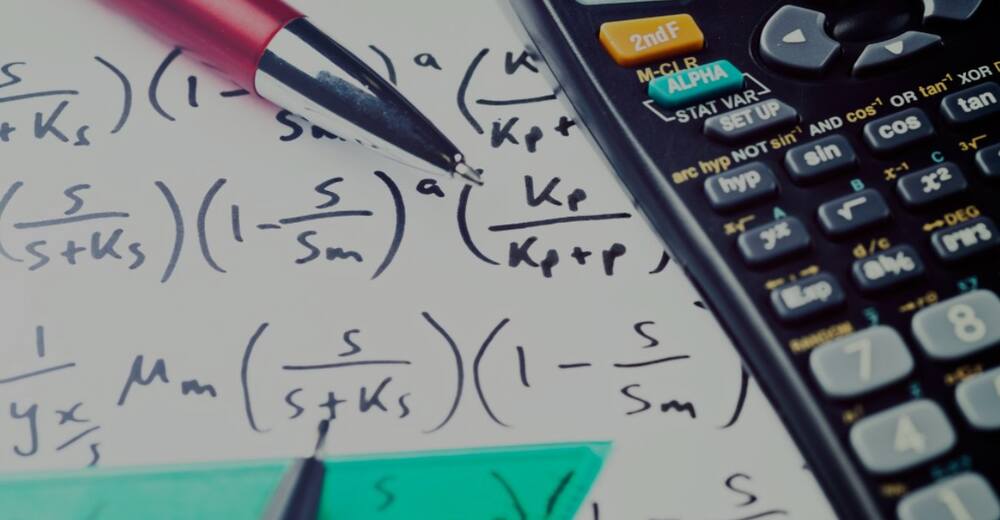 s/(s + Ks) ) ( 1 - Sm )^a ( K/(Kp +
( s/(s + Ks) ) ( 1 - s/Sm )^a ( Kp/(Kp + p) )
1/(y x/s) μm ( s/(s + Ks) ) ( 1 - s/Sm )
s
s
2ndF
M-CLR
ALPHA
STAT VAR
SET UP
arc hyp NOT sin⁻¹ AND cos⁻¹ OR tan⁻¹ XOR
hyp sin cos tan
x√ A B x⁻¹ C ³√
yˣ √ x² 
d/c ↔DEG
Exp a b/c
RANDOM
7 8
4
1